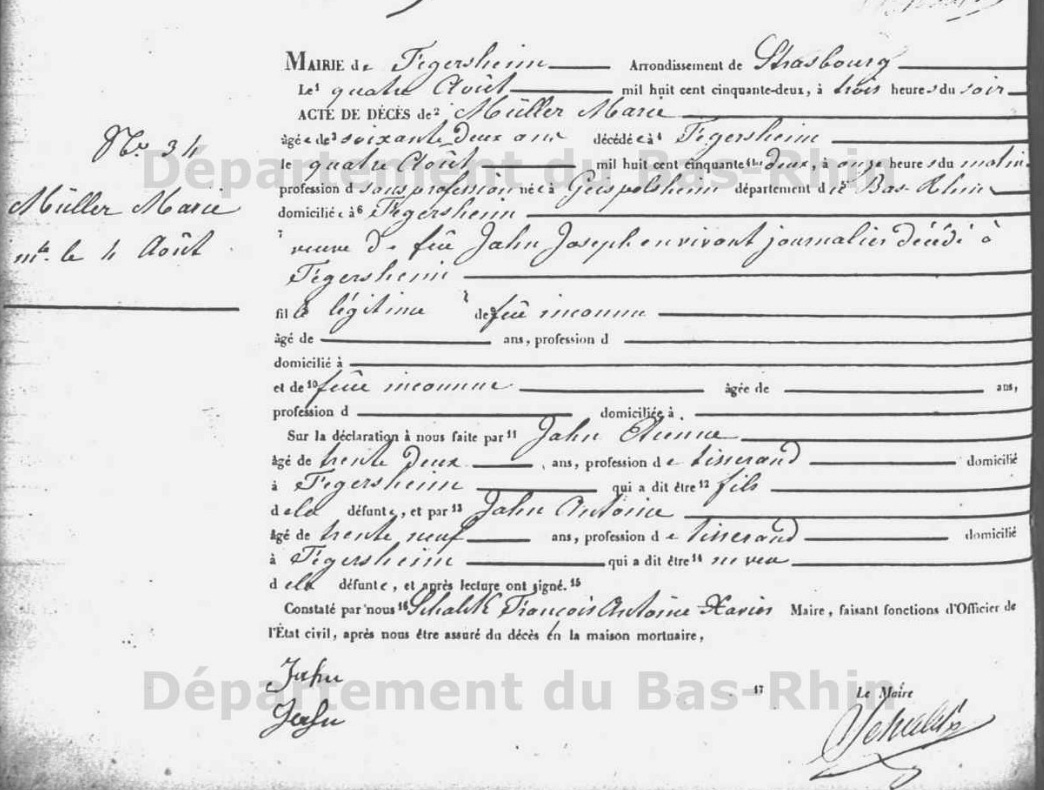 No. 34
Müller Marie
me. le 4 Août
MAIRIE de Fegersheim Arrondissement de Strasbourg
Le 1 quatre Août mil huit cent cinquante-deux, à trois heures du soir
ACTE DE DÉCÈS de 2 Müller Marie
âgée de 3 soixante deux ans décédée à 4 Fegersheim
le quatre Août mil huit cent cinquante deux, à onze heures du matin
profession d sans profession née à Geispolsheim département du 5 Bas-Rhin
domiciliée à 6 Fegersheim
7 veuve de feû Jahn Joseph en vivant journalier décédé à
Fegersheim
fille légitime de feû inconnu
âgé de ans, profession d
domicilié à
et de 10 feûe inconnue âgée de ans,
profession d domiciliée à
Sur la déclaration à nous faite par 11 Jahn Etienne
âgé de trente deux ans, profession de tisserand domicilié
à Fegersheim qui a dit être 12 fils
de la défunte, et par 13 Jahn Antoine
âgé de trente neuf ans, profession de tisserand domicilié
à Fegersheim qui a dit être 14 neveu
de la défunte, et après lecture ont signé. 15
Constaté par nous 16 François Antoine Xavier Maire, faisant fonctions d'Officier de
l'État civil, après nous être assuré du décès en la maison mortuaire,
Jahn
Jahn
17 Le Maire
Département du Bas-Rhin
Département du Bas-Rhin